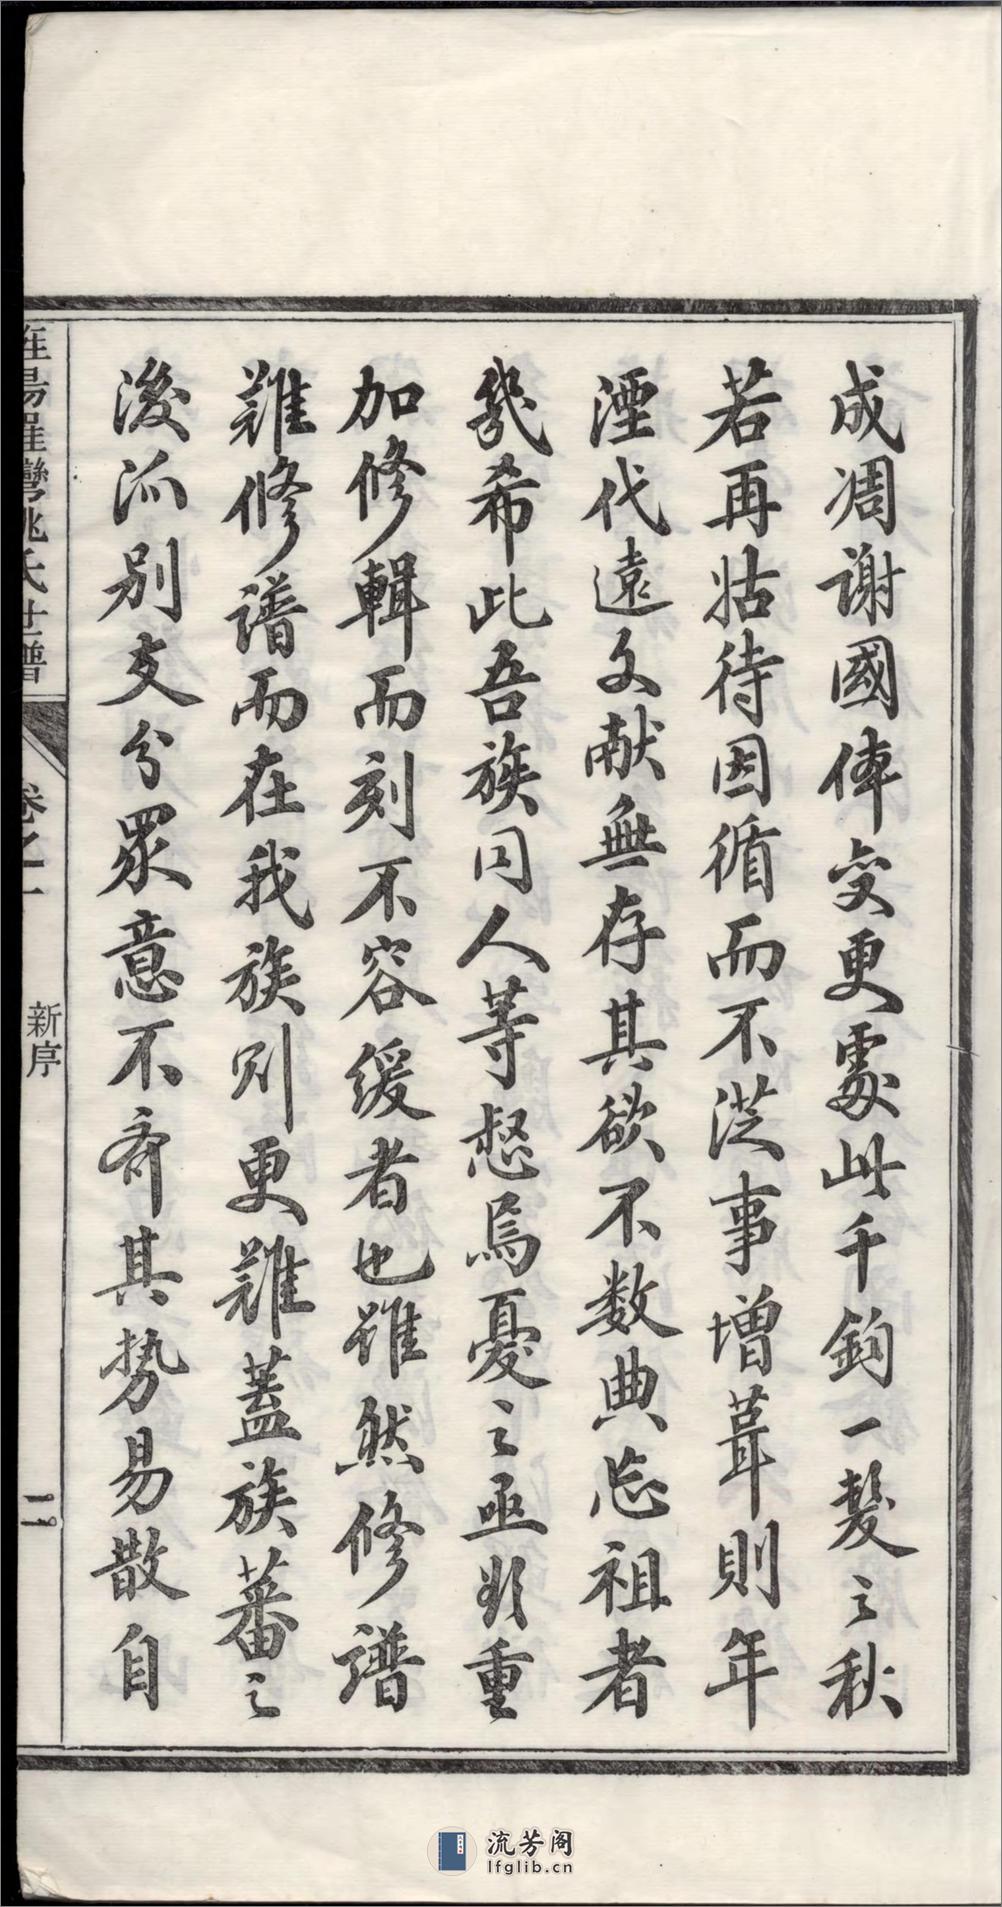 成凋謝國俸变更處此千鈞一髮之秋
若再姑待因循而不從事增葺則年
湮代遠文献無存其欲不数典忘祖者
幾希此吾族同人等惄焉憂之亟欲重
加修輯而刻不容緩者也雖然修譜
難修譜而在我族則更難蓋族蕃之
後派別支分眾意不齐其势易散自
羅灣姚氏世譜
卷之一
新序
二
流芳阁
lfglib.cn